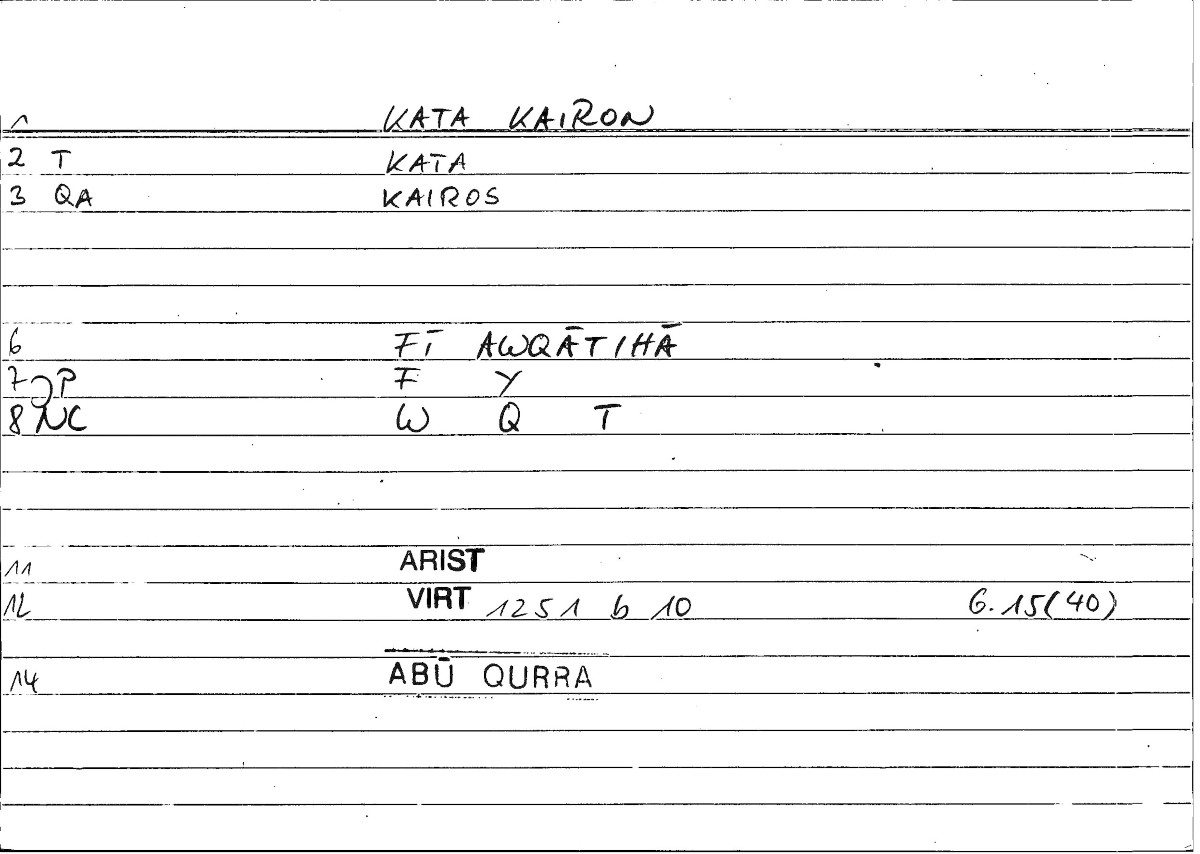 1 KATA KAIRON
2 T KATA
3 QA KAIROS
6 FĪ AWQĀTIHĀ
7 P F Y
8 NC W Q T
11 ARIST
12 VIRT 1251 b 10 6.15(40)
14 ABŪ QURRA